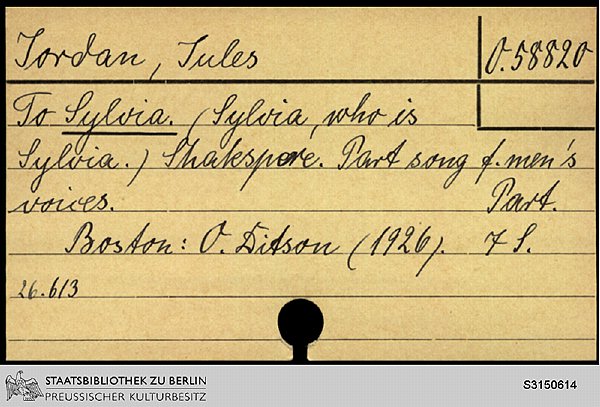 Jordan, Jules
O.58820
To Sylvia. (Sylvia, who is
Sylvia.) Shakspere. Part song f. men's
voices. Part.
Boston: O. Ditson (1926). 7 S.
26.613
STAATSBIBLIOTHEK ZU BERLIN
PREUSSISCHER KULTURBESITZ
S3150614